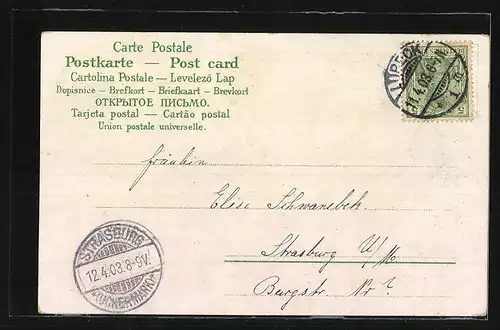 Carte Postale
Postkarte — Post card
Cartolina Postale — Levelező Lap
Dopisnice — Brefkort — Briefkaart — Brevkort
ОТКРЫТОЕ ПИСЬМО.
Tarjeta postal — Cartão postal
Union postale universelle.
LÜBECK
11.4.03.
Fräulein
Elise Schwanebeck.
Strasburg U/M
Burgstr. Nr ?
STRASBURG
12.4.03.8-9V.
(UCKERMARK)